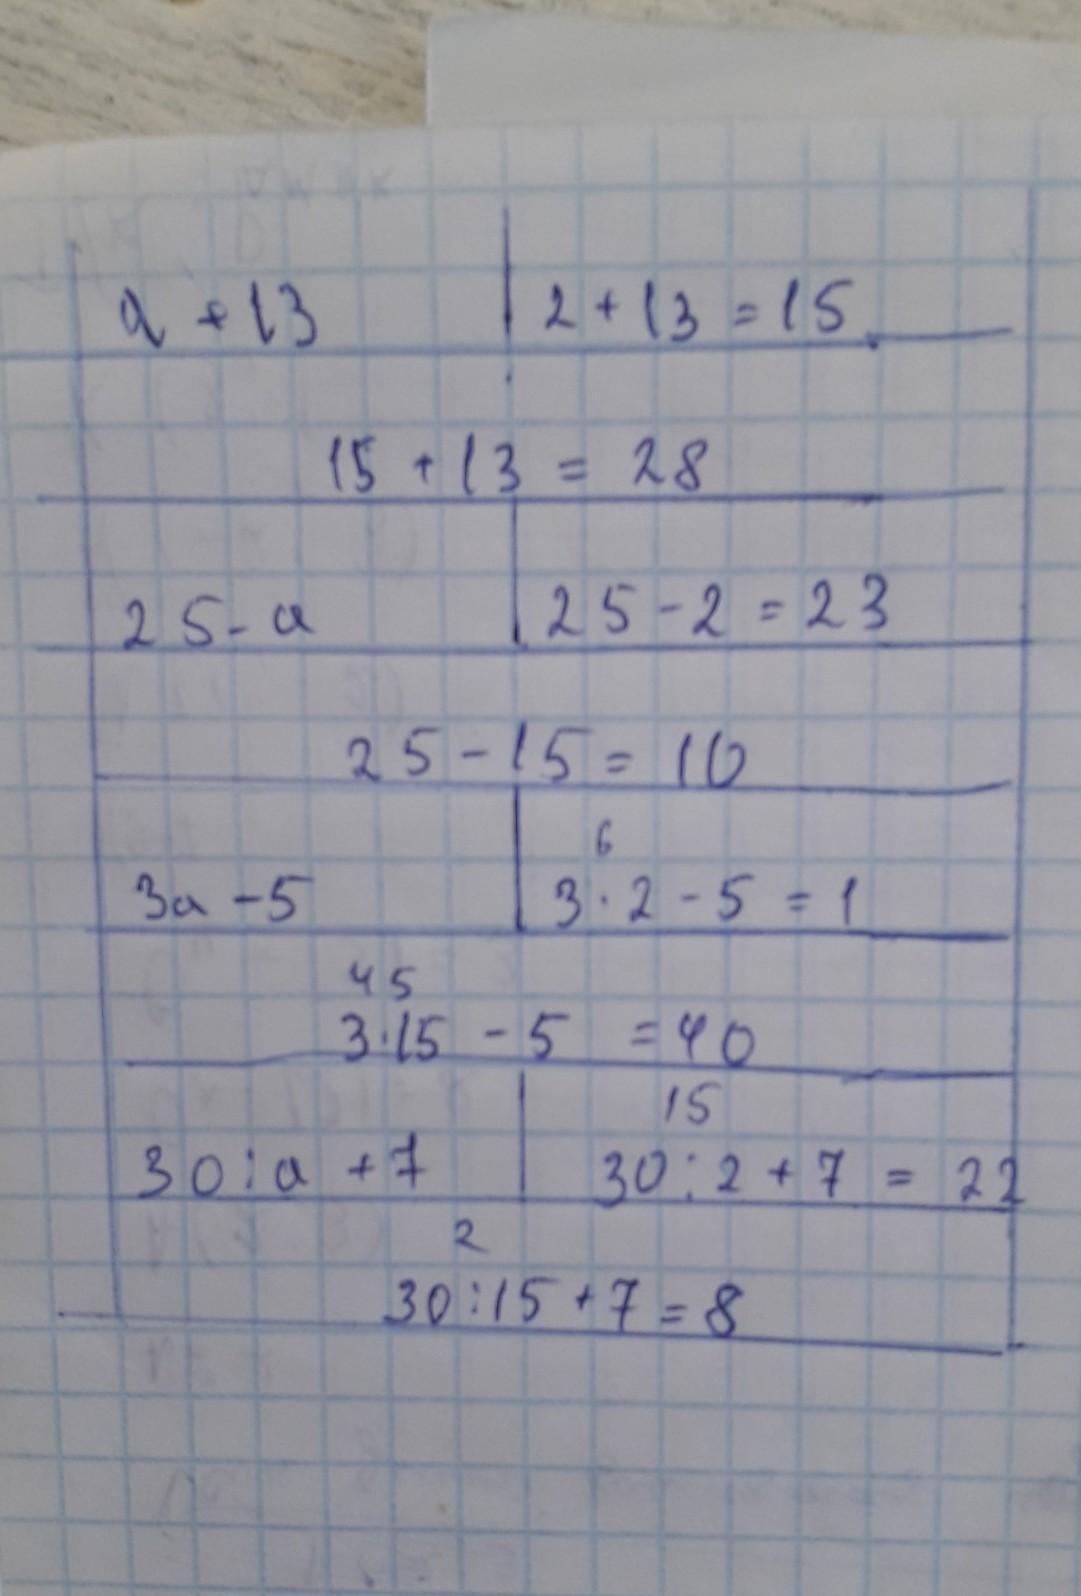 a + 13 2 + 13 = 15
15 + 13 = 28
25 - a 25 - 2 = 23
25 - 15 = 10
6
3a - 5 3 · 2 - 5 = 1
45
3·15 - 5 = 40
15
30 : a + 7 30 : 2 + 7 = 22
2
30 : 15 + 7 = 8